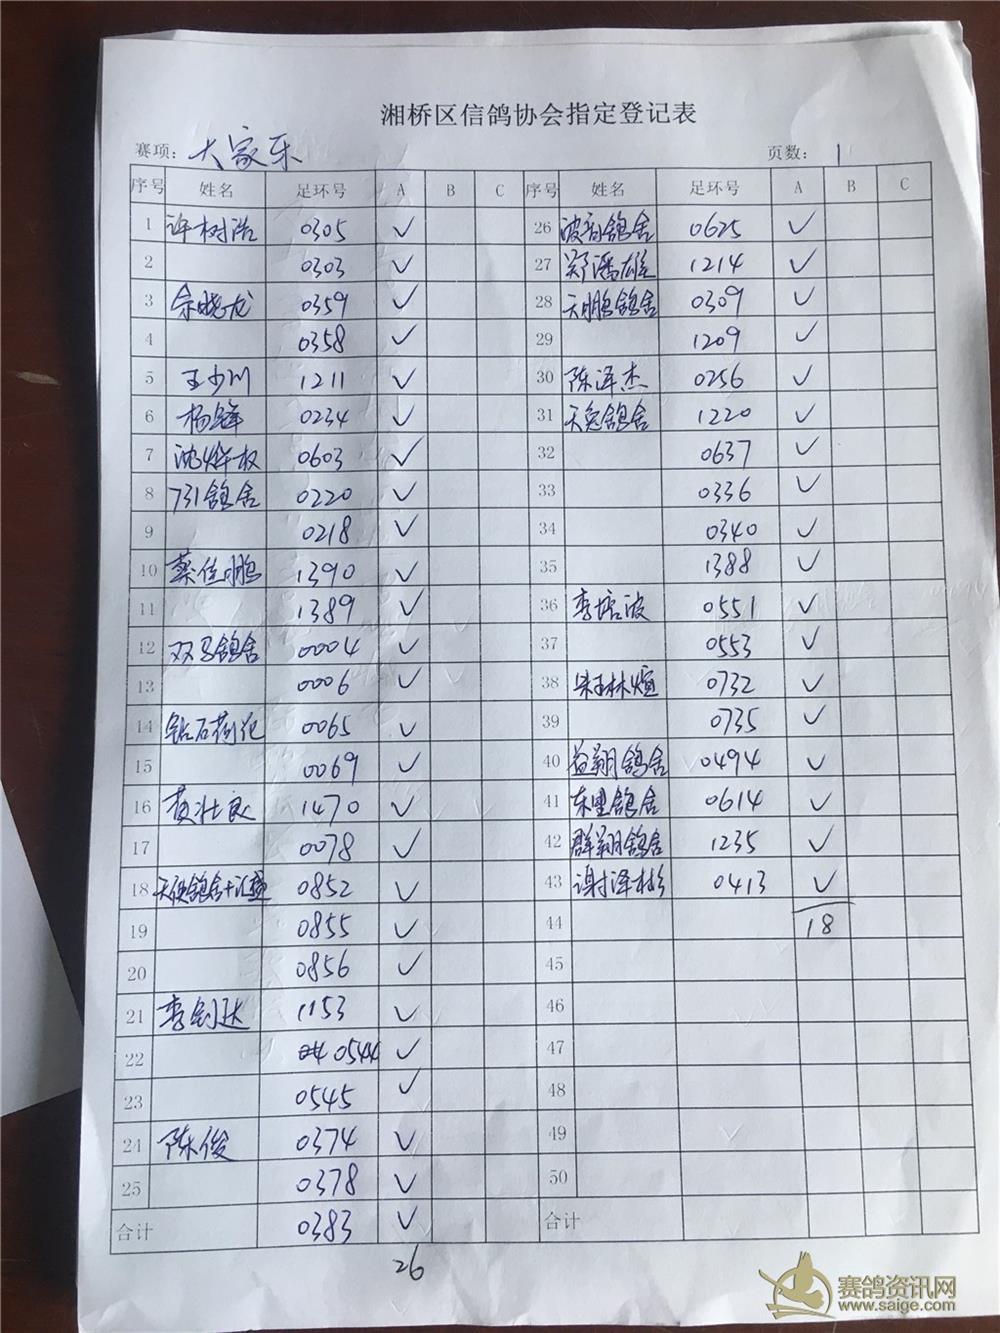 湘桥区信鸽协会指定登记表
赛项: 大家乐 页数: 1
序号 姓名 足环号 A B C 序号 姓名 足环号 A B C
1 许树浩 0305 ✓ 26 鸽舍 0625 ✓
2 0303 ✓ 27 郑潘雄 1214 ✓
3 余晓龙 0359 ✓ 28 天鹏鸽舍 0309 ✓
4 0358 ✓ 29 1209 ✓
5 王少川 1211 ✓ 30 陈泽杰 0256 ✓
6 杨锋 0234 ✓ 31 天兔鸽舍 1220 ✓
7 沈烨权 0603 ✓ 32 0637 ✓
8 731鸽舍 0220 ✓ 33 0336 ✓
9 0218 ✓ 34 0340 ✓
10 蔡佳鹏 1390 ✓ 35 1388 ✓
11 1389 ✓ 36 李培波 0551 ✓
12 双马鸽舍 0004 ✓ 37 0553 ✓
13 0006 ✓ 38 0732 ✓
14 钻石荷花 0065 ✓ 39 0735 ✓
15 0069 ✓ 40 益翔鸽舍 0494 ✓
16 黄壮良 1470 ✓ 41 东里鸽舍 0614 ✓
17 0078 ✓ 42 群翔鸽舍 1235 ✓
18 0852 ✓ 43 谢泽彬 0413 ✓
19 0855 ✓ 44 18
20 0856 ✓ 45
21 李剑达 1153 ✓ 46
22 0544 ✓ 47
23 0545 ✓ 48
24 陈俊 0374 ✓ 49
25 0378 ✓ 50
合计 0383 ✓ 合计
26
赛鸽资讯网
www.saige.com